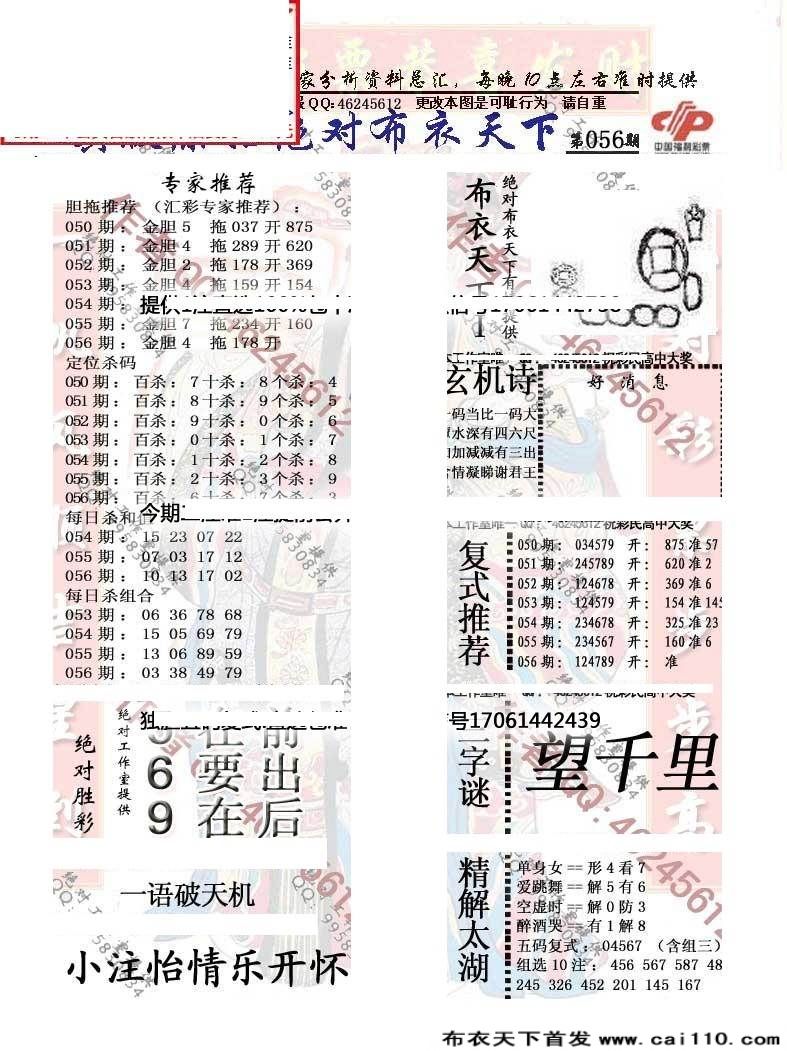 家分析资料总汇，每晚10点左右准时提供
QQ:46245612 更改本图是可耻行为 请自重
绝对布衣天下 第056期
中国福利彩票
专家推荐
胆拖推荐 （汇彩专家推荐）：
050 期： 金胆 5 拖 037 开 875
051 期： 金胆 4 拖 289 开 620
052 期： 金胆 2 拖 178 开 369
053 期： 金胆 4 拖 159 开 154
054 期
055 期： 金胆 7 拖 234 开 160
056 期： 金胆 4 拖 178 开
定位杀码
050 期： 百杀： 7 十杀： 8 个杀： 4
051 期： 百杀： 8 十杀： 9 个杀： 5
052 期： 百杀： 9 十杀： 0 个杀： 6
053 期： 百杀： 0 十杀： 1 个杀： 7
054 期： 百杀： 1 十杀： 2 个杀： 8
055 期： 百杀： 2 十杀： 3 个杀： 9
056 期： 百杀： 6 十杀： 7 个杀： 3
每日杀和值
今期
054 期： 15 23 07 22
055 期： 07 03 17 12
056 期： 10 13 17 02
每日杀组合
053 期： 06 36 78 68
054 期： 15 05 69 79
055 期： 13 06 89 59
056 期： 03 38 49 79
绝对胜彩
绝对工作室提供
6 要出
9 在后
一语破天机
小注怡情乐开怀
布衣天下
绝对布衣天下有
提供
46245612 祝彩民高中大奖
玄机诗
好消息
码当比一码大
水深有四六尺
加减减有三出
情凝睇谢君王
46245612 祝彩民高中大奖
复式推荐
050 期： 034579 开： 875 准 57
051 期： 245789 开： 620 准 2
052 期： 124678 开： 369 准 6
053 期： 124579 开： 154 准 145
054 期： 234678 开： 325 准 23
055 期： 234567 开： 160 准 6
056 期： 124789 开： 准
号17061442439
字谜
望千里
精解太湖
单身女 == 形 4 看 7
爱跳舞 == 解 5 有 6
空虚时 == 解 0 防 3
醉酒哭 == 有 1 解 8
五码复式：04567 （含组三）
组选 10 注： 456 567 587 48
245 326 452 201 145 167
布衣天下首发 www.cai110.com